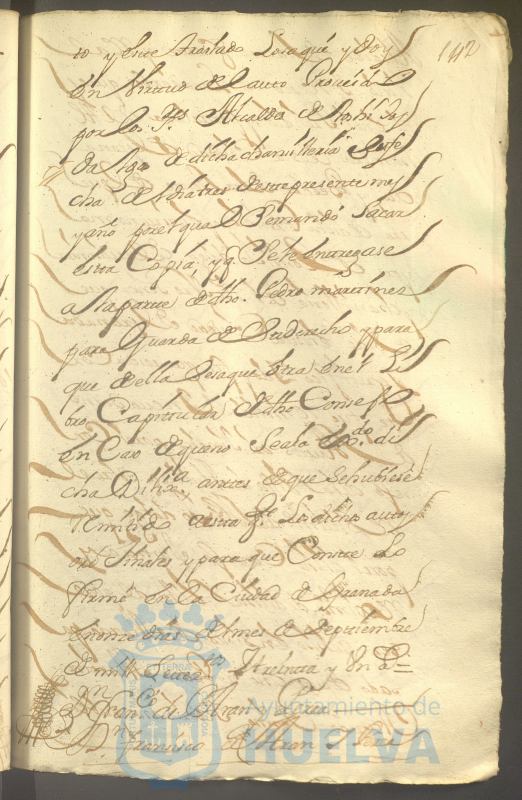 142
to y este traslado se saque y doy
en Virtud del auto Proveido
por los Sres Alcaldes de hijos dal
go de dicha chanzilleria
cha el dia tres deste presente mes
y año por el qual Mandó sacar
esta Copia, y q. Se le entregase
a la parte de dho. Pedro martinez
para Guarda de Su derecho y para
que de ella Se saque otra en el Li
bro Capitular de dho Consejo
en Caso de que no Se aia di
cha antes de que Se hubiese
Remitido a esta los dichos autos
originales y para que Conste Lo
firme en la Ciudad de Granada
en onze dias del mes de Septiembre
de mill Setez.os Treinta y Un a.s
Ayuntamiento de
HUELVA